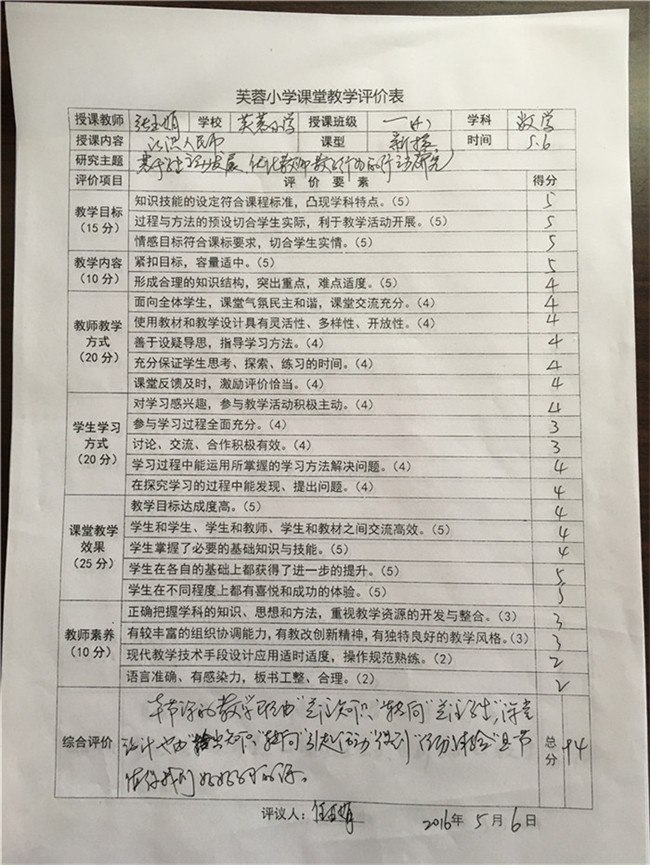 芙蓉小学课堂教学评价表
授课教师 学校 芙蓉小学 授课班级 一(4) 学科 数学
授课内容 认识人民币 课型 新授 时间 5.6
研究主题
评价项目 评 价 要 素 得分
教学目标（15 分）
知识技能的设定符合课程标准，凸现学科特点。（5） 5
过程与方法的预设切合学生实际，利于教学活动开展。（5） 5
情感目标符合课标要求，切合学生实情。（5） 5
教学内容（10 分）
紧扣目标，容量适中。（5） 5
形成合理的知识结构，突出重点，难点适度。（5） 4
教师教学方式（20 分）
面向全体学生，课堂气氛民主和谐，课堂交流充分。（4） 4
使用教材和教学设计具有灵活性、多样性、开放性。（4） 4
善于设疑导思，指导学习方法。（4） 4
充分保证学生思考、探索、练习的时间。（4） 4
课堂反馈及时，激励评价恰当。（4） 4
学生学习方式（20 分）
对学习感兴趣，参与教学活动积极主动。（4） 4
参与学习过程全面充分。（4） 3
讨论、交流、合作积极有效。（4） 3
学习过程中能运用所掌握的学习方法解决问题。（4） 4
在探究学习的过程中能发现、提出问题。（4） 4
课堂教学效果（25 分）
教学目标达成度高。（5） 4
学生和学生、学生和教师、学生和教材之间交流高效。（5） 4
学生掌握了必要的基础知识与技能。（5） 4
学生在各自的基础上都获得了进一步的提升。（5） 5
学生在不同程度上都有喜悦和成功的体验。（5） 5
教师素养（10 分）
正确把握学科的知识、思想和方法，重视教学资源的开发与整合。（3） 3
有较丰富的组织协调能力，有教改创新精神，有独特良好的教学风格。（3） 3
现代教学技术手段设计应用适时适度，操作规范熟练。（2） 2
语言准确、有感染力，板书工整、合理。（2） 2
综合评价
本节课的教学 由"关注知识"转向"关注学生"，课堂
设计也由 知识"转向"引起活动"
总分
评议人：
2016年 5 月 6 日